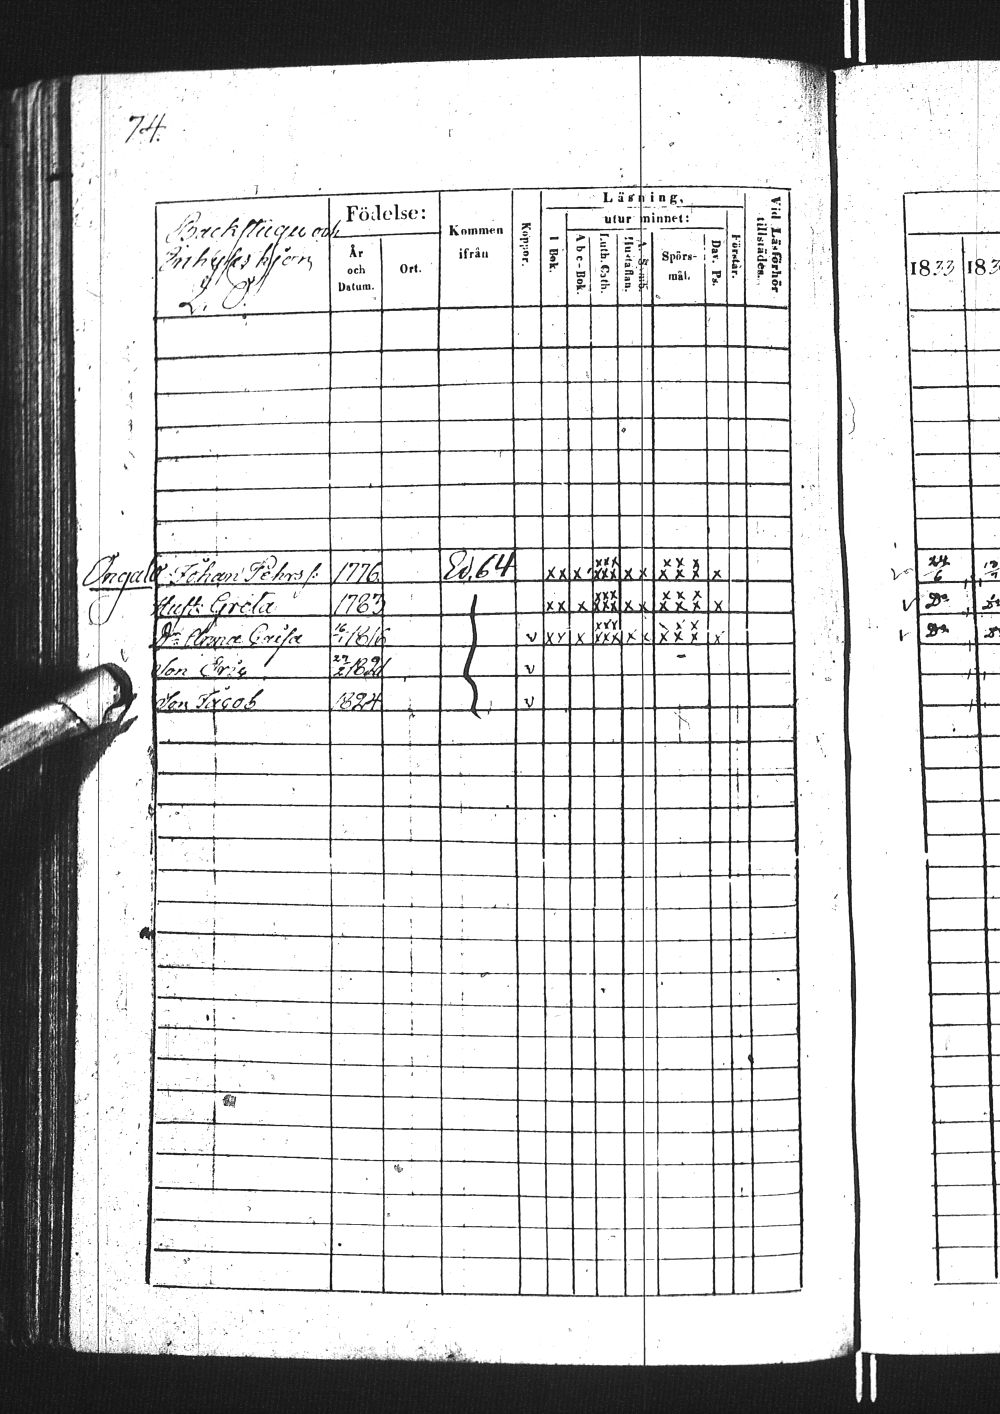 74.
Backstugu och
Inhyses hjon
Födelse:
År
och
Datum.
Ort.
Kommen
ifrån
Koppor.
Läsning,
utur minnet:
I Bok.
Abc-Bok.
Luth. Cath.
Hustaflan.
Spörs-
mål.
Dav. Ps.
Förstår.
Vid Läsförhör
tillstädes.
1833
183
Johan Pehrss: 1776 Ed. 64 x x x xxx xxx x x x x x x x x x
Hust: Greta 1763 x x x xxx xxx x x x x x x x x x
Dr. Anna Caisa 16/1 1816 v x x x xxx xxx x x x x x x x x x
Son Eric 1821 v
Son Jacob 1824 v
24/6
Do
Do